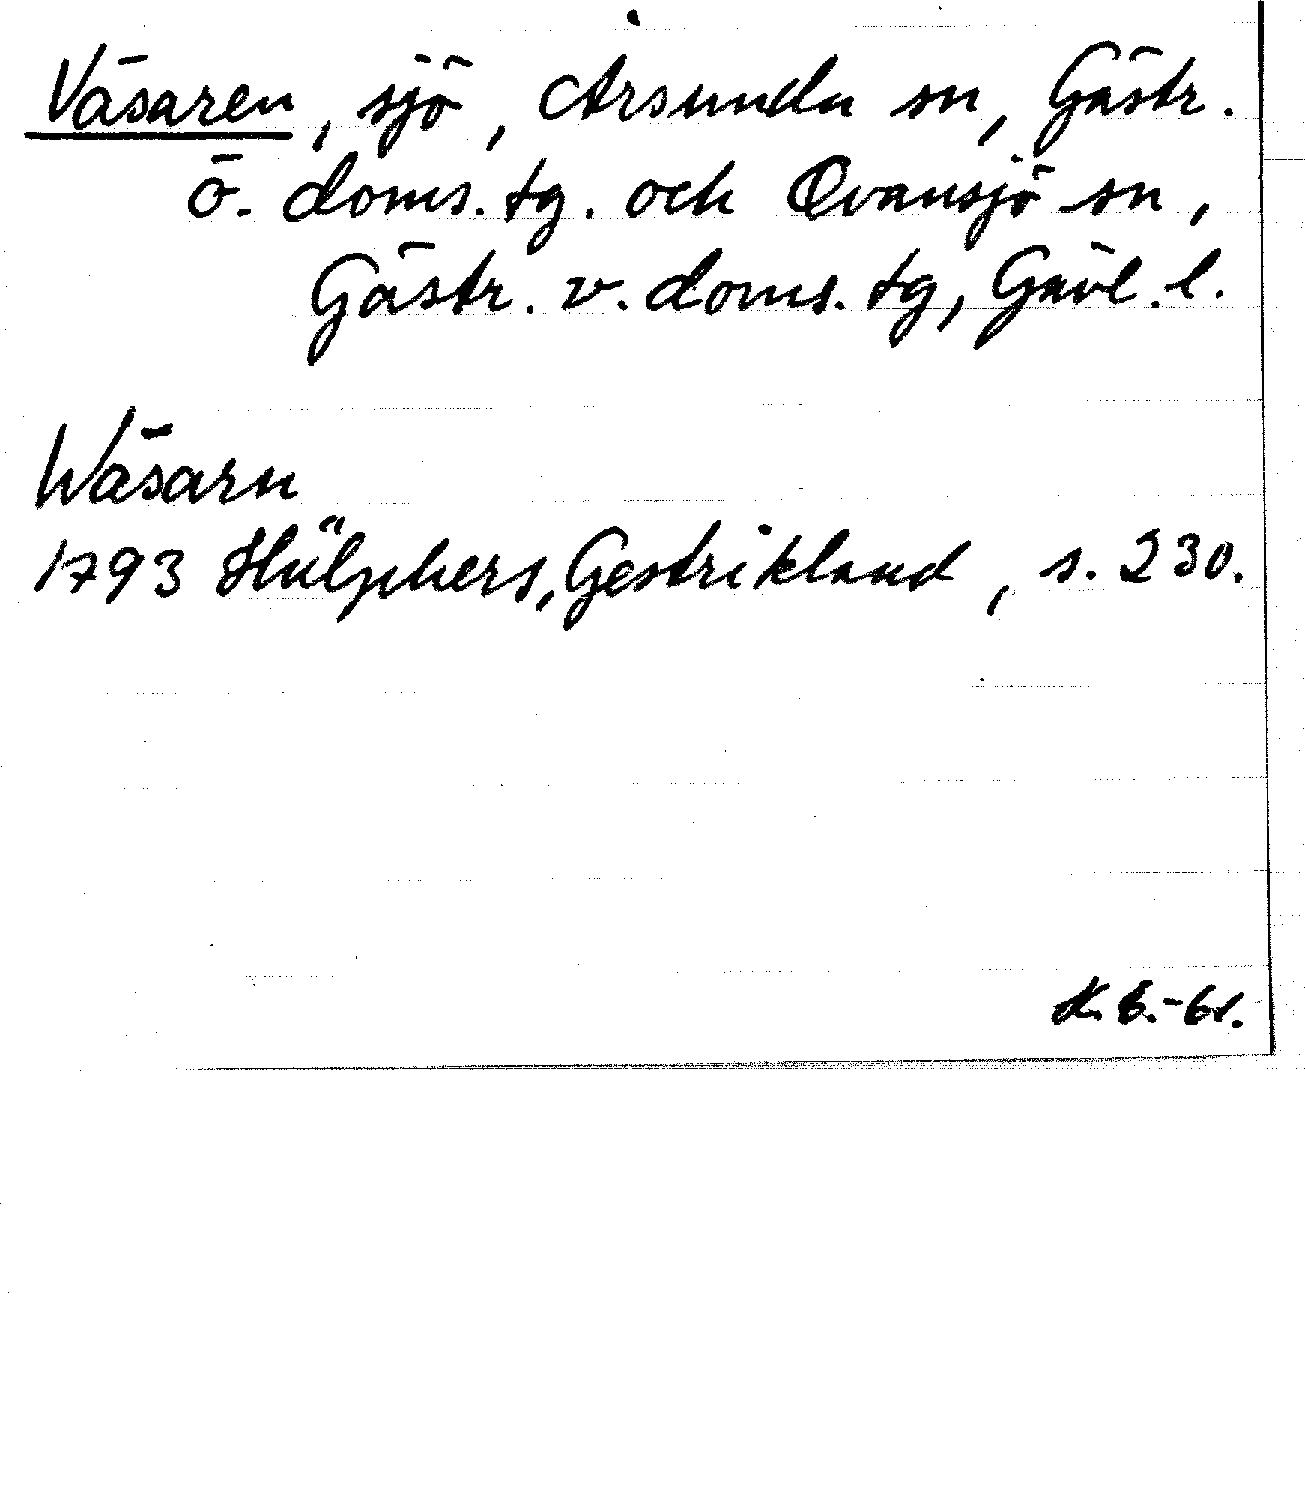 Väsaren, sjö, Årsunda sn, Gästr.
ö. doms. tg. och Ovansjö sn,
Gästr. v. doms. tg, Gävl. l.
Wäsarn
1793 Hülphers, Gestrikland, s. 230.